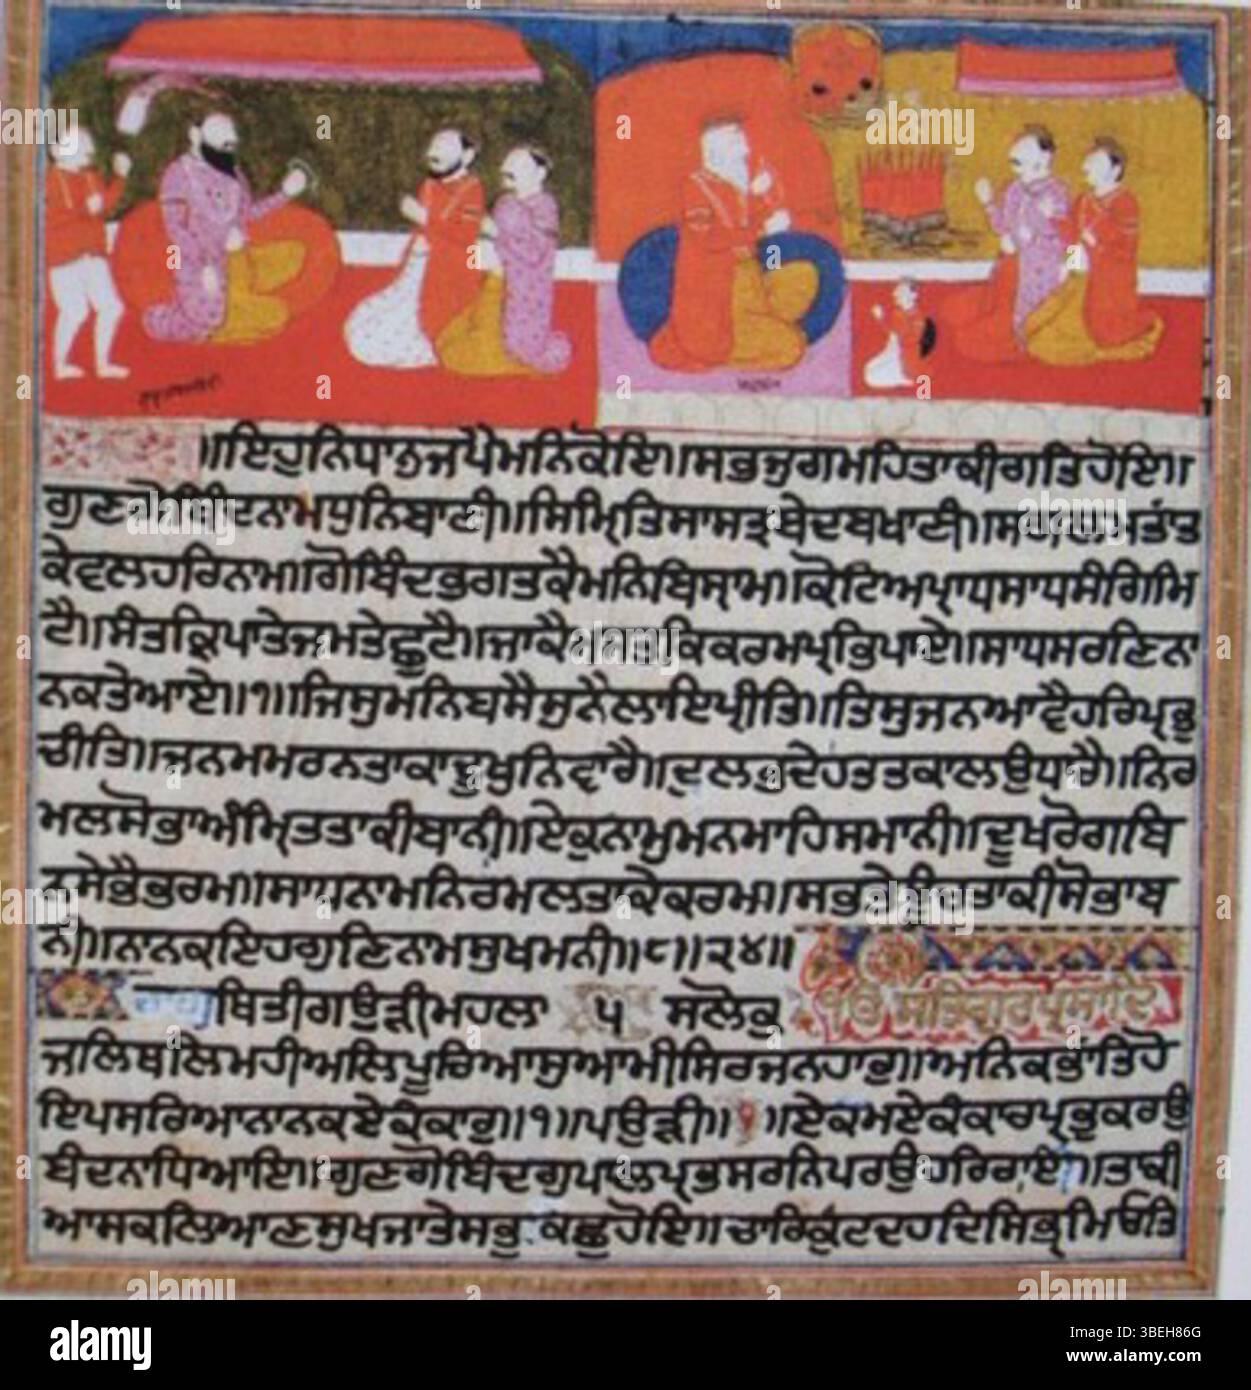 ॥ਇਹੁਨਿਧਾਨੁਜਪੈਮਨਿਕੋਇ॥ਸਭਜੁਗਮਹਿਤਾਕੀਗਤਿਹੋਇ॥
ਗੁਣਗੋਬਿੰਦਨਾਮਧੁਨਿਬਾਣੀ॥ਸਿਮ੍ਰਿਤਿਸਾਸਤ੍ਰਬੇਦਬਖਾਣੀ॥ਸਗਲਮਤਾਂਤ
ਕੇਵਲਹਰਿਨਾਮ॥ਗੋਬਿੰਦਭਗਤਕੈਮਨਿਬਿਸ੍ਰਾਮ॥ਕੋਟਿਅਪ੍ਰਾਧਸਾਧਸੰਗਿਮਿ
ਟੈ॥ਸੰਤਕ੍ਰਿਪਾਤੇਜਮਤੇਛੁਟੈ॥ਜਾਕੈਮਸਤਕਿਕਰਮਪ੍ਰਭਿਪਾਏ॥ਸਾਧਸਰਣਿਨਾ
ਨਕਤੇਆਏ॥੧॥ਜਿਸੁਮਨਿਬਸੈਸੁਨੈਲਾਇਪ੍ਰੀਤਿ॥ਤਿਸੁਜਨਆਵੈਹਰਿਪ੍ਰਭੁ
ਚੀਤਿ॥ਜਨਮਮਰਨਤਾਕਾਦੂਖੁਨਿਵਾਰੈ॥ਦੁਲਭਦੇਹਤਤਕਾਲਉਧਾਰੈ॥ਨਿਰ
ਮਲਸੋਭਾਅੰਮ੍ਰਿਤਤਾਕੀਬਾਨੀ॥ਏਕੁਨਾਮੁਮਨਮਾਹਿਸਮਾਨੀ॥ਦੂਖਰੋਗਬਿ
ਨਸੇਭੈਭਰਮ॥ਸਾਧਨਾਮਨਿਰਮਲਤਾਕੇਕਰਮ॥ਸਭਤੇਊਚਤਾਕੀਸੋਭਾਬ
ਨੀ॥ਨਾਨਕਇਹਗੁਣਿਨਾਮਸੁਖਮਨੀ॥੮॥੨੪॥
ਥਿਤੀਗਉੜੀਮਹਲਾ ੫ ਸਲੋਕੁ ੴਸਤਿਗੁਰਪ੍ਰਸਾਦਿ
ਜਲਿਥਲਿਮਹੀਅਲਿਪੂਰਿਆਸੁਆਮੀਸਿਰਜਨਹਾਰੁ॥ਅਨਿਕਭਾਂਤਿਹੋ
ਇਪਸਰਿਆਨਾਨਕਏਕੰਕਾਰੁ॥੧॥ਪਉੜੀ॥ ॥ਏਕਮਏਕੰਕਾਰਪ੍ਰਭੁਕਰਉ
ਬੰਦਨਾਧਿਆਇ॥ਗੁਣਗੋਬਿੰਦਗੁਪਾਲਪ੍ਰਭਸਰਨਿਪਰਉਹਰਿਰਾਏ॥ਤਾਕੀ
ਆਸਕਲਿਆਣਸੁਖਜਾਤੇਸਭੁਕਛੁਹੋਇ॥ਚਾਰਿਕੁੰਟਦਹਦਿਸਿਭ੍ਰਮਿਓਤਿ
alamy
Image ID: 3BEH86G
www.alamy.com